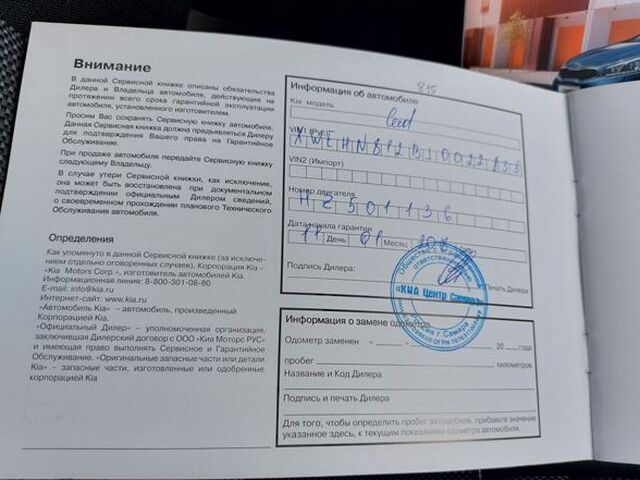 815
Внимание
В данной Сервисной книжке описаны обязательства
Дилера и Владельца автомобиля, действующие на
протяжении всего срока гарантийной эксплуатации
автомобиля, установленного изготовителем.
Просим Вас сохранять Сервисную книжку автомобиля.
Данная Сервисная книжка должна предъявляться Дилеру
для подтверждения Вашего права на Гарантийное
Обслуживание.
При продаже автомобиля передайте Сервисную книжку
следующему Владельцу.
В случае утери Сервисной книжки, как исключение,
она может быть восстановлена при документальном
подтверждении официальным Дилером сведений,
о своевременном прохождении планового Технического
Обслуживания автомобиля.
Определения
Как упомянуто в данной Сервисной книжке (за исключе-
нием отдельно оговоренных случаев), Корпорация Kia -
«Kia Motors Corp.», изготовитель автомобилей Kia.
Информационная линия: 8-800-301-08-80
E-mail: info@kia.ru
Интернет-сайт: www.kia.ru
«Автомобиль Kia» – автомобиль, произведенный
Корпорацией Kia.
«Официальный Дилер» – уполномоченная организация,
заключившая Дилерский договор с ООО «Киа Моторс РУС»
и имеющая право выполнять Сервисное и Гарантийное
Обслуживание. «Оригинальные запасные части или детали
Kia» – запасные части, изготовленные или одобренные
корпорацией Kia
Информация об автомобиле
Kia модель
Ceed
VIN1
VIN2 (Импорт)
Номер двигателя
HZ501136
Дата начала гарантии
День 01 Месяц
Подпись Дилера:
Печать Дилера
«КИА Центр
Самара
Информация о замене одометра
Одометр заменен « - » 20 года
пробег километров.
Название и Код Дилера
Подпись и печать Дилера
Для того, чтобы определить пробег автомобиля, прибавьте значение
указанное здесь, к текущим показаниям одометра автомобиля.